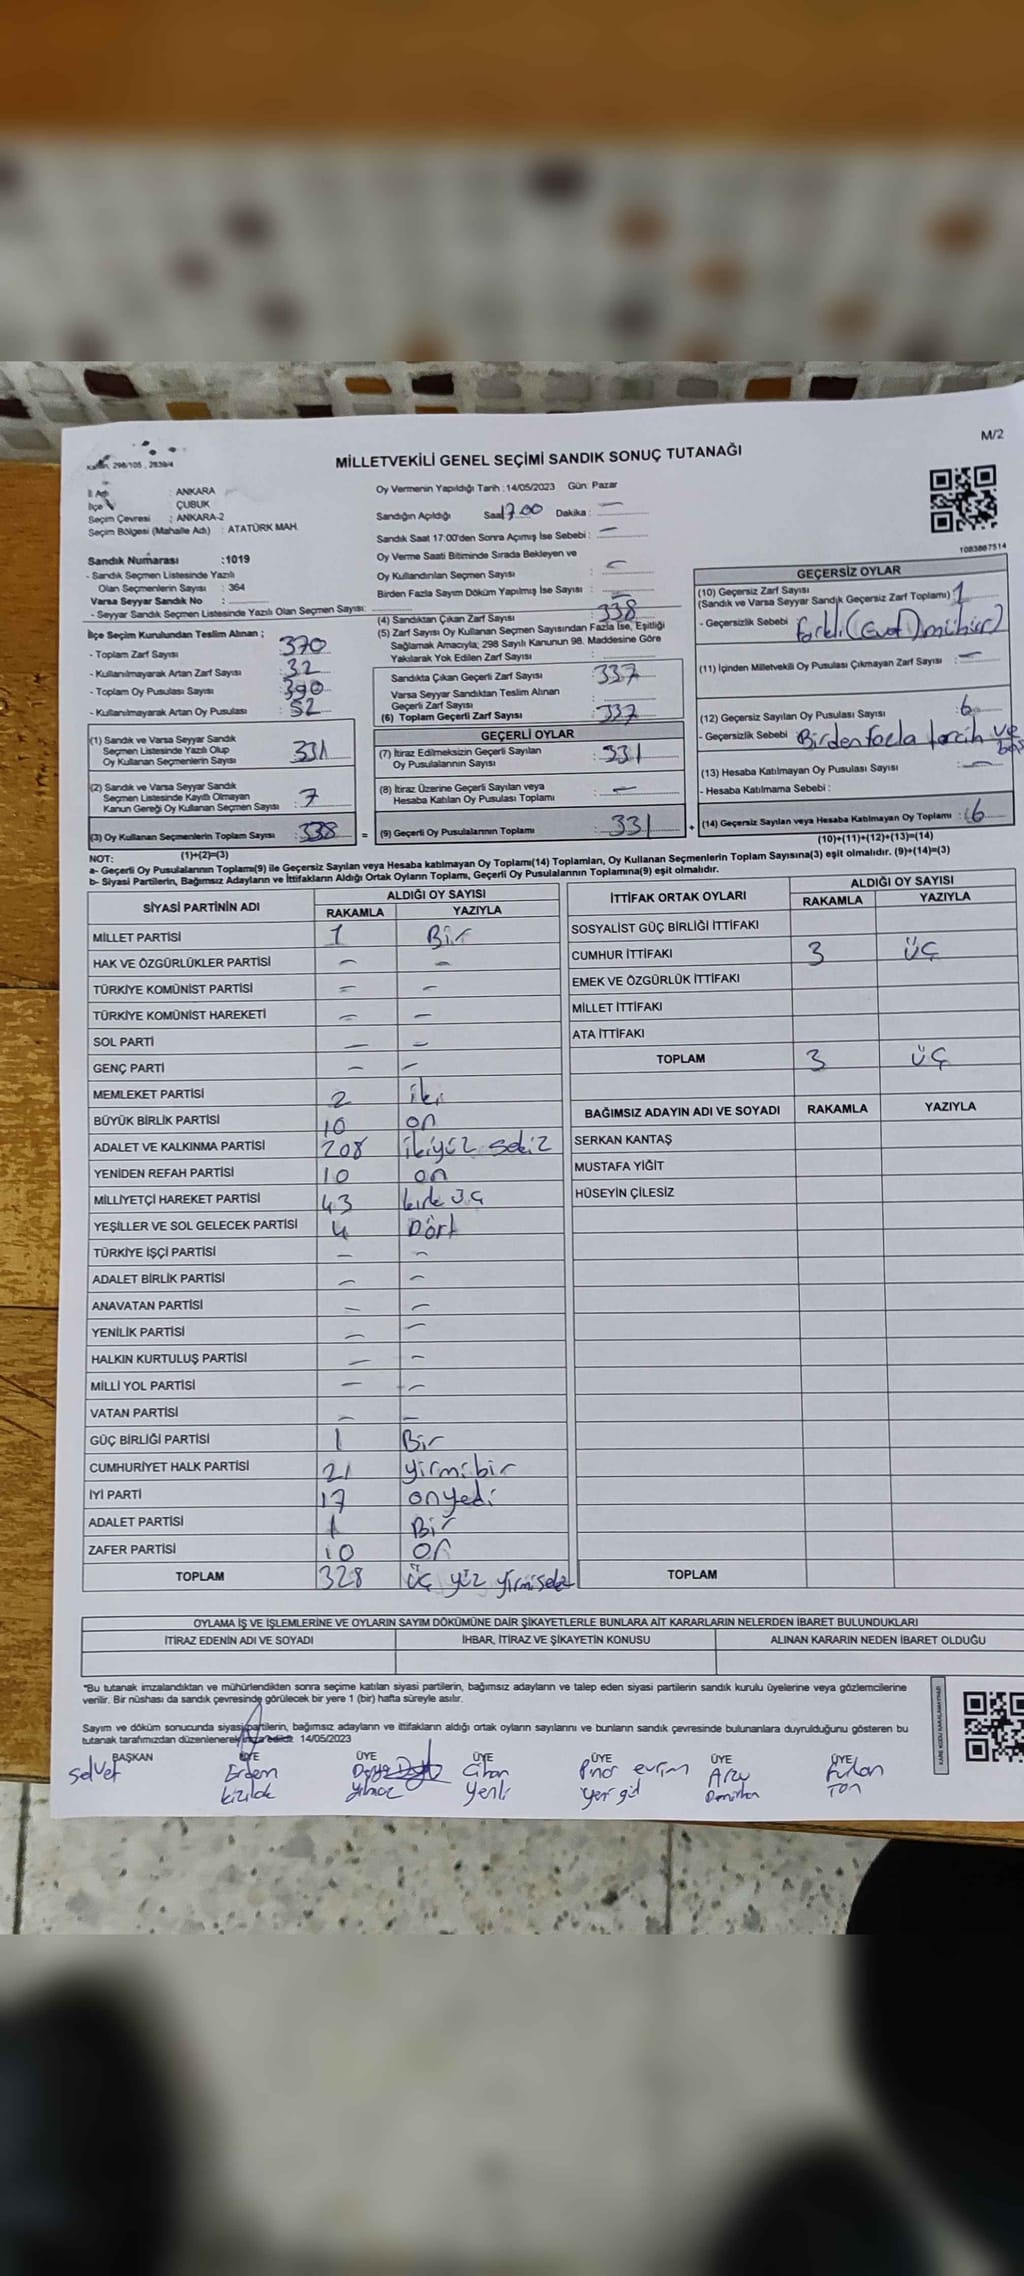 M/2
Kanun, 298/105 , 2839/4
MİLLETVEKİLİ GENEL SEÇİMİ SANDIK SONUÇ TUTANAĞI
İl Adı : ANKARA
İlçe : ÇUBUK
Seçim Çevresi : ANKARA-2
Seçim Bölgesi (Mahalle Adı) : ATATÜRK MAH.
Oy Vermenin Yapıldığı Tarih : 14/05/2023 Gün: Pazar
Sandığın Açıldığı Saat 17.00 Dakika : —
Sandık Saat 17:00'den Sonra Açımış İse Sebebi : —
Oy Verme Saati Bitiminde Sırada Bekleyen ve
Oy Kullandırılan Seçmen Sayısı : —
Birden Fazla Sayım Döküm Yapılmış İse Sayısı : —
1083867514
Sandık Numarası :1019
- Sandık Seçmen Listesinde Yazılı
Olan Seçmenlerin Sayısı : 364
Varsa Seyyar Sandık No :
- Seyyar Sandık Seçmen Listesinde Yazılı Olan Seçmen Sayısı:
İlçe Seçim Kurulundan Teslim Alınan ;
- Toplam Zarf Sayısı : 370
- Kullanılmayarak Artan Zarf Sayısı : 32
- Toplam Oy Pusulası Sayısı : 390
- Kullanılmayarak Artan Oy Pusulası : 52
(1) Sandık ve Varsa Seyyar Sandık
Seçmen Listesinde Yazılı Olup
Oy Kullanan Seçmenlerin Sayısı : 331
(2) Sandık ve Varsa Seyyar Sandık
Seçmen Listesinde Kayıtlı Olmayan
Kanun Gereği Oy Kullanan Seçmen Sayısı : 7
(3) Oy Kullanan Seçmenlerin Toplam Sayısı : 338 =
(1)+(2)=(3)
(4) Sandıktan Çıkan Zarf Sayısı : 338
(5) Zarf Sayısı Oy Kullanan Seçmen Sayısından Fazla İse, Eşitliği
Sağlamak Amacıyla; 298 Sayılı Kanunun 98. Maddesine Göre
Yakılarak Yok Edilen Zarf Sayısı :
Sandıkta Çıkan Geçerli Zarf Sayısı : 337
Varsa Seyyar Sandıktan Teslim Alınan
Geçerli Zarf Sayısı :
(6) Toplam Geçerli Zarf Sayısı : 337
GEÇERLİ OYLAR
(7) İtiraz Edilmeksizin Geçerli Sayılan
Oy Pusulalarının Sayısı : 331
(8) İtiraz Üzerine Geçerli Sayılan veya
Hesaba Katılan Oy Pusulası Toplamı : —
(9) Geçerli Oy Pusulalarının Toplamı : 331 +
GEÇERSİZ OYLAR
(10) Geçersiz Zarf Sayısı
(Sandık ve Varsa Seyyar Sandık Geçersiz Zarf Toplamı) : 1
- Geçersizlik Sebebi farklı (Evet) mühür)
(11) İçinden Milletvekili Oy Pusulası Çıkmayan Zarf Sayısı : —
(12) Geçersiz Sayılan Oy Pusulası Sayısı : 6
- Geçersizlik Sebebi Birden fazla tercih ve
(13) Hesaba Katılmayan Oy Pusulası Sayısı : —
- Hesaba Katılmama Sebebi :
(14) Geçersiz Sayılan veya Hesaba Katılmayan Oy Toplamı : 6
(10)+(11)+(12)+(13)=(14)
NOT:
a- Geçerli Oy Pusulalarının Toplamı(9) ile Geçersiz Sayılan veya Hesaba katılmayan Oy Toplamı(14) Toplamları, Oy Kullanan Seçmenlerin Toplam Sayısına(3) eşit olmalıdır. (9)+(14)=(3)
b- Siyasi Partilerin, Bağımsız Adayların ve İttifakların Aldığı Ortak Oyların Toplamı, Geçerli Oy Pusulalarının Toplamına(9) eşit olmalıdır.
SİYASİ PARTİNİN ADI ALDIĞI OY SAYISI
RAKAMLA YAZIYLA
MİLLET PARTİSİ 1 Bir
HAK VE ÖZGÜRLÜKLER PARTİSİ — —
TÜRKİYE KOMÜNİST PARTİSİ — —
TÜRKİYE KOMÜNİST HAREKETİ — —
SOL PARTİ — —
GENÇ PARTİ — —
MEMLEKET PARTİSİ 2 iki
BÜYÜK BİRLİK PARTİSİ 10 on
ADALET VE KALKINMA PARTİSİ 208 ikiyüz sekiz
YENİDEN REFAH PARTİSİ 10 on
MİLLİYETÇİ HAREKET PARTİSİ 43 kırk üç
YEŞİLLER VE SOL GELECEK PARTİSİ 4 Dört
TÜRKİYE İŞÇİ PARTİSİ — —
ADALET BİRLİK PARTİSİ — —
ANAVATAN PARTİSİ — —
YENİLİK PARTİSİ — —
HALKIN KURTULUŞ PARTİSİ — —
MİLLİ YOL PARTİSİ — —
VATAN PARTİSİ — —
GÜÇ BİRLİĞİ PARTİSİ 1 Bir
CUMHURİYET HALK PARTİSİ 21 yirmibir
İYİ PARTİ 17 onyedi
ADALET PARTİSİ 1 Bir
ZAFER PARTİSİ 10 on
TOPLAM 328 üç yüz yirmisekiz
İTTİFAK ORTAK OYLARI ALDIĞI OY SAYISI
RAKAMLA YAZIYLA
SOSYALİST GÜÇ BİRLİĞİ İTTİFAKI
CUMHUR İTTİFAKI 3 üç
EMEK VE ÖZGÜRLÜK İTTİFAKI
MİLLET İTTİFAKI
ATA İTTİFAKI
TOPLAM 3 üç
BAĞIMSIZ ADAYIN ADI VE SOYADI RAKAMLA YAZIYLA
SERKAN KANTAŞ
MUSTAFA YİĞİT
HÜSEYİN ÇİLESİZ
TOPLAM
OYLAMA İŞ VE İŞLEMLERİNE VE OYLARIN SAYIM DÖKÜMÜNE DAİR ŞİKAYETLERLE BUNLARA AİT KARARLARIN NELERDEN İBARET BULUNDUKLARI
İTİRAZ EDENİN ADI VE SOYADI İHBAR, İTİRAZ VE ŞİKAYETİN KONUSU ALINAN KARARIN NEDEN İBARET OLDUĞU
"Bu tutanak imzalandıktan ve mühürlendikten sonra seçime katılan siyasi partilerin, bağımsız adayların ve talep eden siyasi partilerin sandık kurulu üyelerine veya gözlemcilerine
verilir. Bir nüshası da sandık çevresinde görülecek bir yere 1 (bir) hafta süreyle asılır.
Sayım ve döküm sonucunda siyasi partilerin, bağımsız adayların ve ittifakların aldığı ortak oyların sayılarını ve bunların sandık çevresinde bulunanlara duyrulduğunu gösteren bu
tutanak tarafımızdan düzenlenerek imza edildi. 14/05/2023
BAŞKAN ÜYE ÜYE ÜYE ÜYE ÜYE ÜYE
Selvet Erdem Derya Cihan Pınar evrim Arzu Furkan
kızılok Yılmaz Yenli Yerigül Demirhan Ton